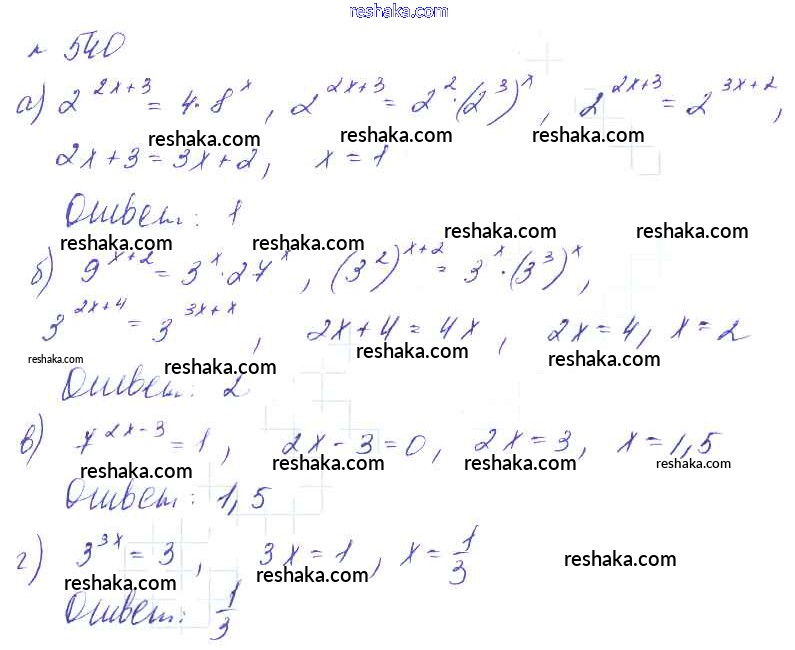 reshaka.com
№ 540
а) 2^(2x+3) = 4·8^x, 2^(2x+3) = 2²·(2³)^x, 2^(2x+3) = 2^(3x+2),
reshaka.com reshaka.com reshaka.com reshaka.com
2x+3 = 3x+2, x = 1
Ответ: 1
reshaka.com reshaka.com reshaka.com reshaka.com
б) 9^(x+2) = 3^x·27^x, (3²)^(x+2) = 3^x·(3³)^x,
3^(2x+4) = 3^(3x+x), 2x+4 = 4x, 2x = 4, x = 2
reshaka.com reshaka.com reshaka.com reshaka.com
Ответ: 2
в) 7^(2x-3) = 1, 2x-3 = 0, 2x = 3, x = 1,5
reshaka.com reshaka.com reshaka.com reshaka.com
Ответ: 1,5
г) 3^(3x) = 3, 3x = 1, x = 1/3
reshaka.com reshaka.com reshaka.com
Ответ: 1/3